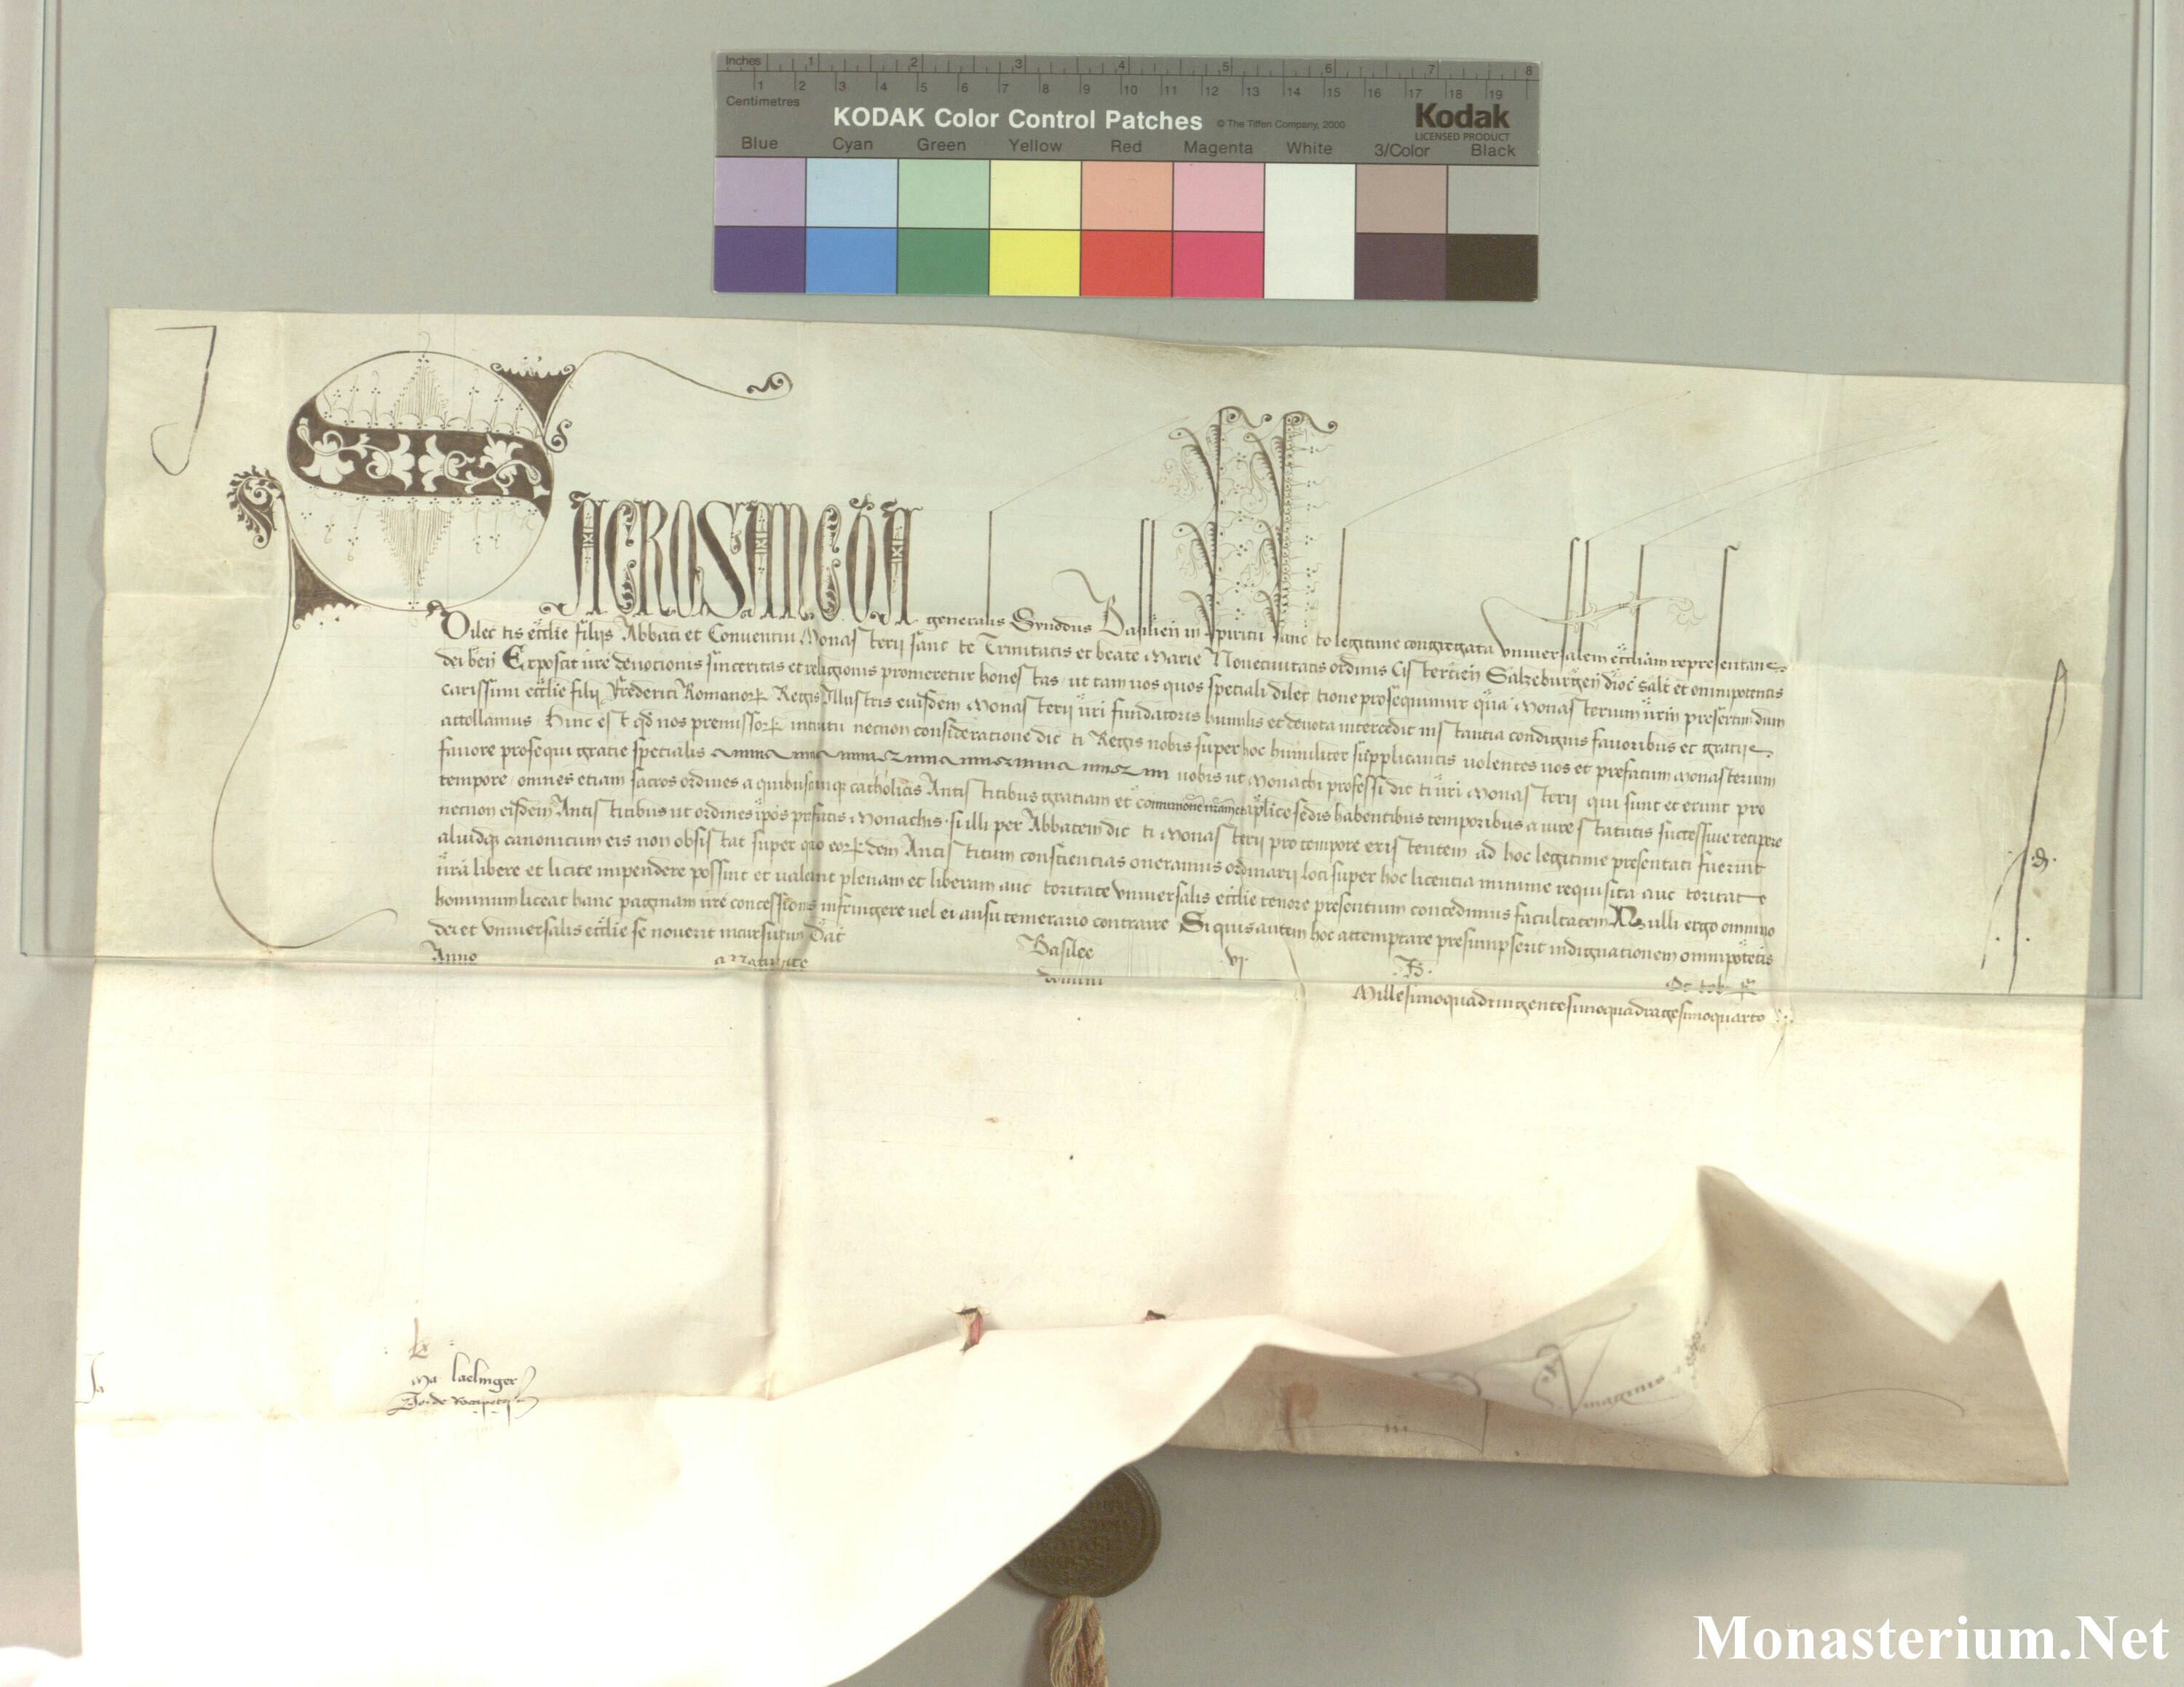 Inches 1 2 3 4 5 6 7 8
1 2 3 4 5 6 7 8 9 10 11 12 13 14 15 16 17 18 19
Centimetres
KODAK Color Control Patches © The Tiffen Company, 2000 Kodak
LICENSED PRODUCT
Blue Cyan Green Yellow Red Magenta White 3/Color Black
SACROSANCTA generalis Synodus Basilien in Spiritu sancto legitime congregata vniuersalem eccliam representans
Dilectis ecclie filijs Abbati et Conuentui Monasterij sancte Trinitatis et beate Marie Noueciuitatis ordinis Cistercien Salzeburgen dioc salt et omnipotentis
dei ben Exposcit vre deuotionis sinceritas et religionis promeretur honestas ut tam uos quos speciali dilectione prosequimur qua Monasterium vrm presertim dum
carissimi ecclie filij Frederici Romanor Regis Illustris eiusdem Monasterij vri fundatoris humilis et deuota intercedit instantia condignis fauoribus et gratijs
attollamus Hinc est qd nos premissor intuitu necnon consideratione dicti Regis nobis super hoc humiliter supplicantis uolentes uos et prefatum Monasterium
fauore prosequi gratie specialis uobis ut Monachi professi dicti vri Monasterij qui sunt et erunt pro
tempore omnes etiam sacros ordines a quibuscumque catholicis Antistitibus gratiam et communione nram et aplice sedis habentibus temporibus a iure statutis successiue recipere
necnon eisdem Antistitibus ut ordines ipos prefatis Monachis si illi per Abbatem dicti Monasterij pro tempore existentem ad hoc legitime presentati fuerint
aliudque canonicum eis non obsistat super quo eordem Antistitum conscientias oneramus ordinarij loci super hoc licentia minime requisita auctoritate
nra libere et licite impendere possint et ualeant plenam et liberam auctoritate vniuersalis ecclie tenore presentium concedimus facultatem Nulli ergo omnino
hominum liceat hanc paginam nre concessionis infringere uel ei ausu temerario contraire Si quis autem hoc attemptare presumpserit indignationem omnipotetis
dei et vniuersalis ecclie se nouerit incursurum Dat Basilee vj Octobr
Anno a Natiuitate domini Millesimoquadringentesimoquadragesimoquarto
Monasterium.Net